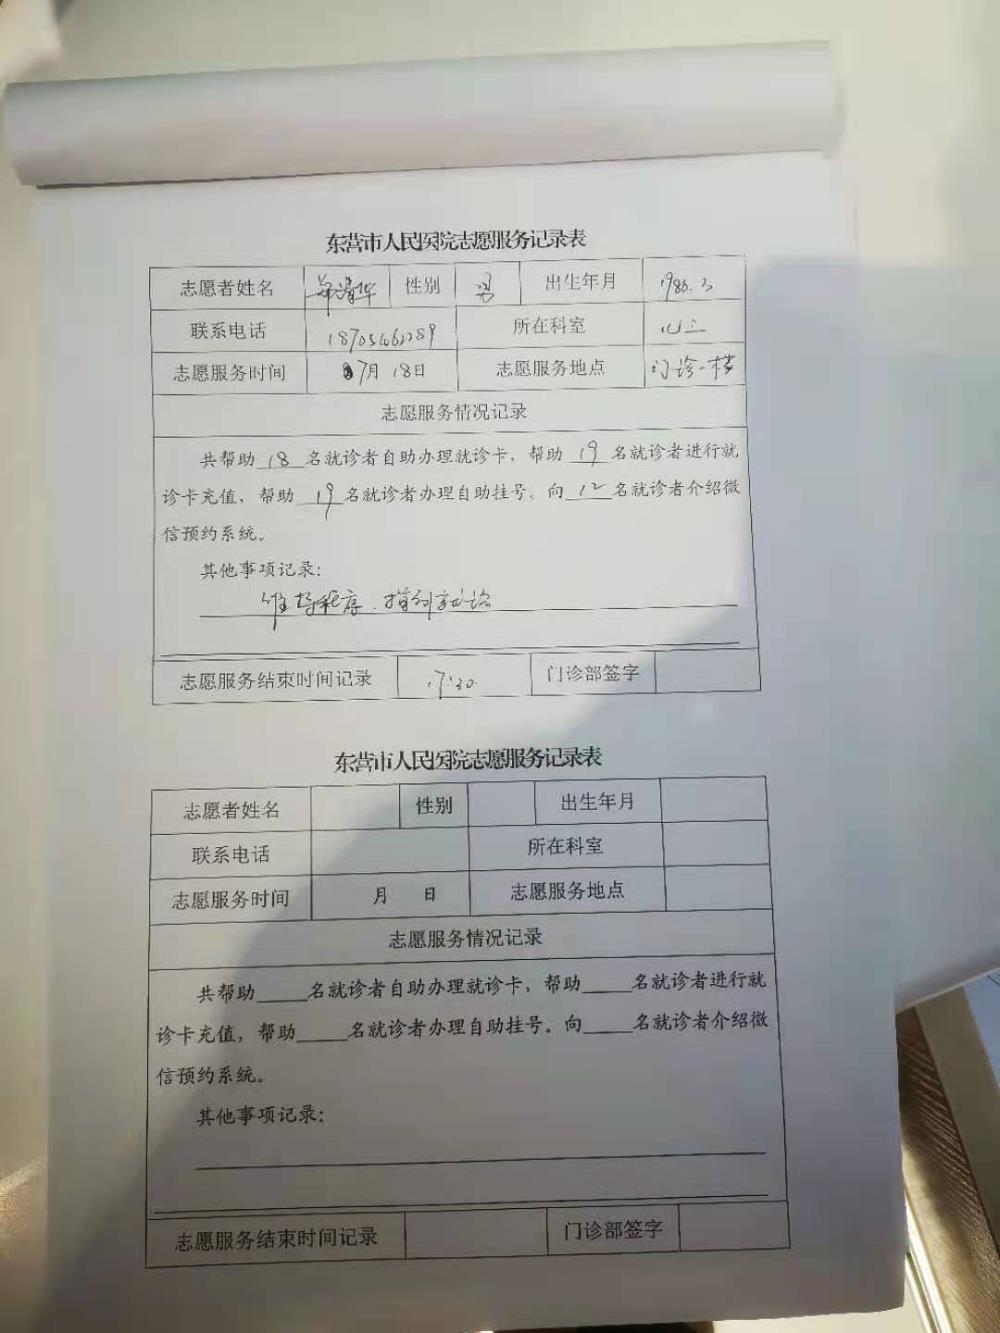 东营市人民医院志愿服务记录表
志愿者姓名 清华 性别 男 出生年月 1986.3
联系电话 所在科室 心三
志愿服务时间 7月 18日 志愿服务地点 门诊一楼
志愿服务情况记录
共帮助 18 名就诊者自助办理就诊卡，帮助 19 名就诊者进行就
诊卡充值，帮助 19 名就诊者办理自助挂号。向 12 名就诊者介绍微
信预约系统。
其他事项记录：
维持秩序、指引就诊
志愿服务结束时间记录 17:30 门诊部签字
东营市人民医院志愿服务记录表
志愿者姓名 性别 出生年月
联系电话 所在科室
志愿服务时间 月 日 志愿服务地点
志愿服务情况记录
共帮助____名就诊者自助办理就诊卡，帮助____名就诊者进行就
诊卡充值，帮助____名就诊者办理自助挂号。向____名就诊者介绍微
信预约系统。
其他事项记录：
志愿服务结束时间记录 门诊部签字